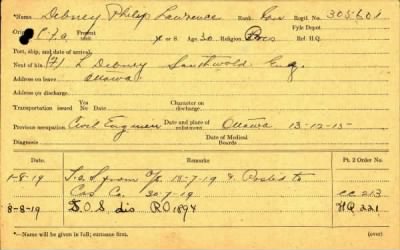 Name Debney Philip Lawrence Rank Gnr Regtl. No. 305601
Original unit C.F.A. Present unit M. or S. Age 30 Religion Pres Fyle Depot Ref. H.Q.
Port, ship, and date of arrival
Next of kin L Debney Southwold Eng.
Address on leave Ottawa
Address on discharge
Transportation issued Yes No Date Character on discharge
Previous occupation Civil Engineer Date and place of enlistment Ottawa 13-12-15
Diagnosis Date of Medical Boards
Date. Remarks Pt. 2 Order No.
1-8-19 T.O.S. from O/S 18-7-19 & Posted to
Cas. Co. 30-7-19 CC 213
8-8-19 S.O.S. dis RO 1894 HQ 221
*—Name will be given in full; surname first. (over)